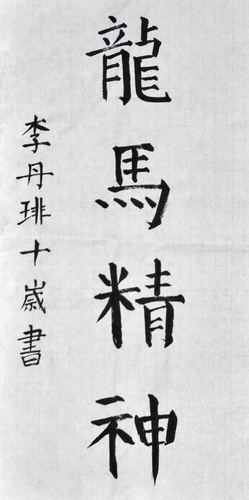 龍馬精神
李丹琲十歲書